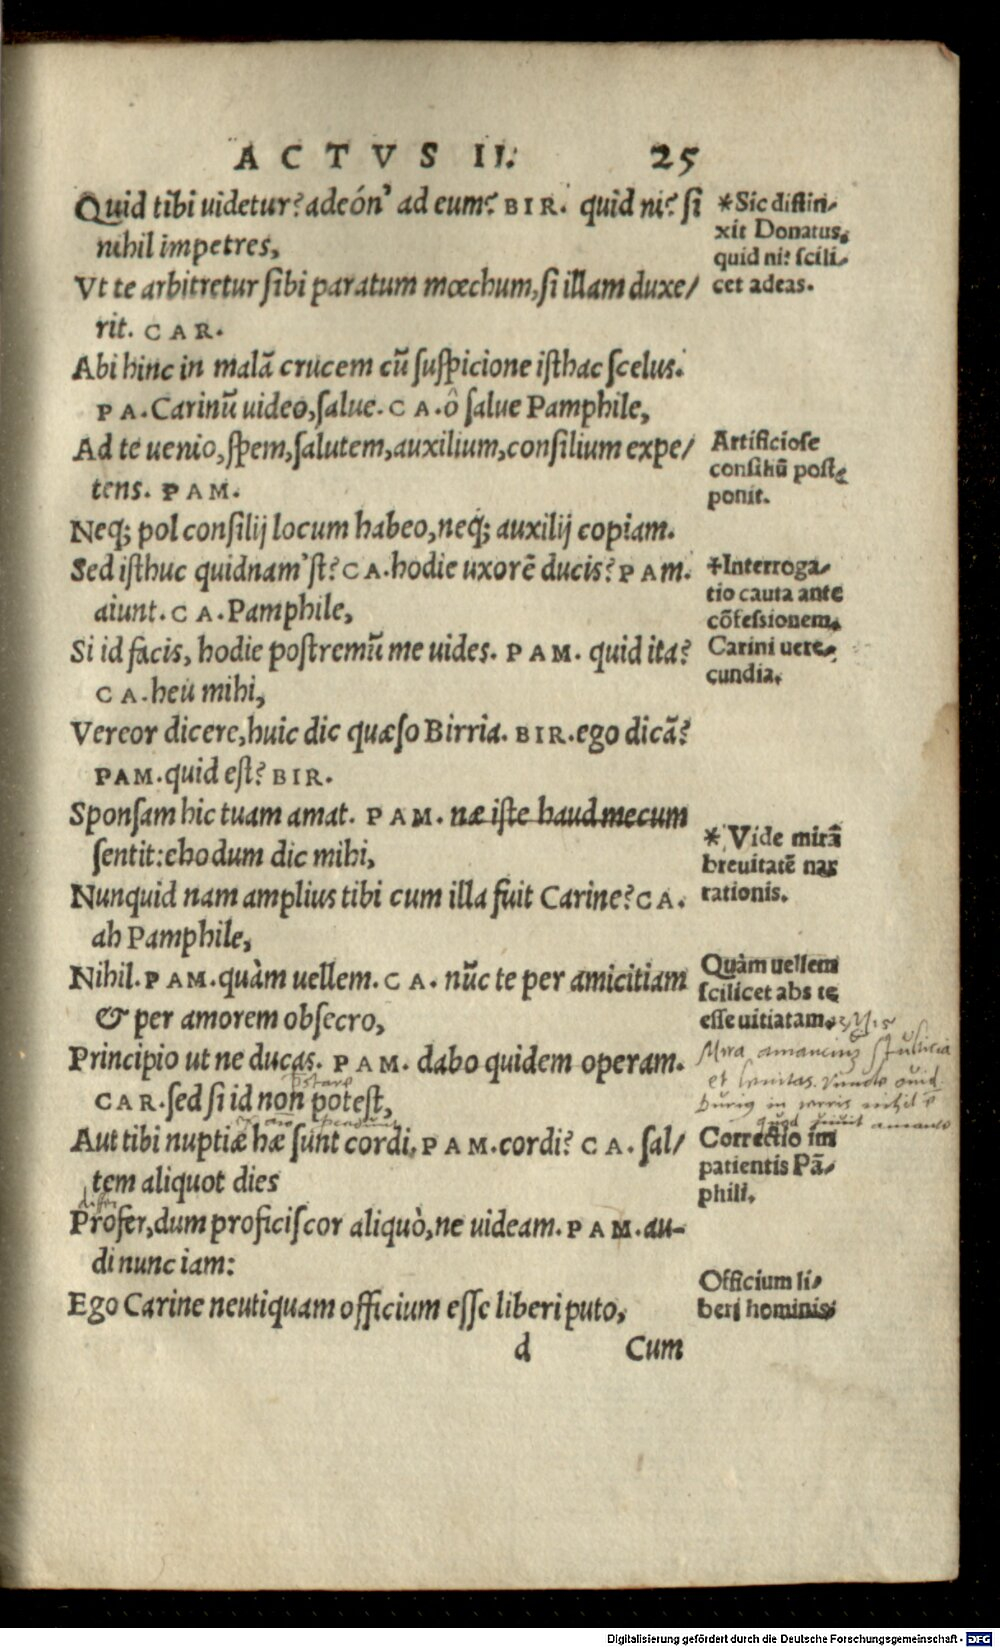 ACTVS II. 25
Quid tibi uidetur? adeón' ad eum? BIR. quid ni? si
nihil impetres,
Vt te arbitretur sibi paratum mœchum, si illam duxe/
rit. CAR.
Abi hinc in malã crucem cũ suspicione isthac scelus.
PA. Carinũ uideo, salue. CA. ô salue Pamphile,
Ad te uenio, spem, salutem, auxilium, consilium expe/
tens. PAM.
Neq; pol consilij locum habeo, neq; auxilij copiam.
Sed isthuc quidnam'st? CA. hodie uxorẽ ducis? PAM.
aiunt. CA. Pamphile,
Si id facis, hodie postremũ me uides. PAM. quid ita?
CA. heu mihi,
Vereor dicere, huic dic quæso Birria. BIR. ego dicã?
PAM. quid est? BIR.
Sponsam hic tuam amat. PAM. næ iste haud mecum
sentit: ehodum dic mihi,
Nunquid nam amplius tibi cum illa fuit Carine? CA.
ah Pamphile,
Nihil. PAM. quàm uellem. CA. nũc te per amicitiam
& per amorem obsecro,
Principio ut ne ducas. PAM. dabo quidem operam.
CAR. sed si id non potest,
Aut tibi nuptiæ hæ sunt cordi. PAM. cordi? CA. sal/
tem aliquot dies
Profer, dum proficiscor aliquò, ne uideam. PAM. au-
di nunc iam:
Ego Carine neutiquam officium esse liberi puto,
d Cum
*Sic distin/
xit Donatus,
quid ni? scili/
cet adeas.
Artificiose
consiliũ post
ponit.
+Interroga/
tio cauta ante
cõfessionem.
Carini uere/
cundia.
* Vide mirã
breuitatẽ nar
rationis.
Quàm uellem
scilicet abs te
esse uitiatam.
Mira amancium stulticia
et lenitas.
in terris nihil
quod amante
Correctio im
patientis Pã/
phili.
Officium li/
beri hominis
Digitalisierung gefördert durch die Deutsche Forschungsgemeinschaft - DFG